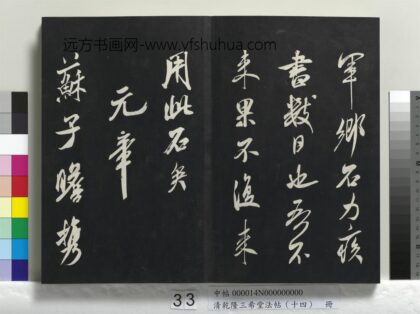 远方书画网-www.yfshuhua.com
軍鄉石力疾
書數日也吾不
来果不復来
用此石矣
元章
蘇子瞻攜
33
中帖 000014N000000000
清乾隆三希堂法帖(十四) 冊